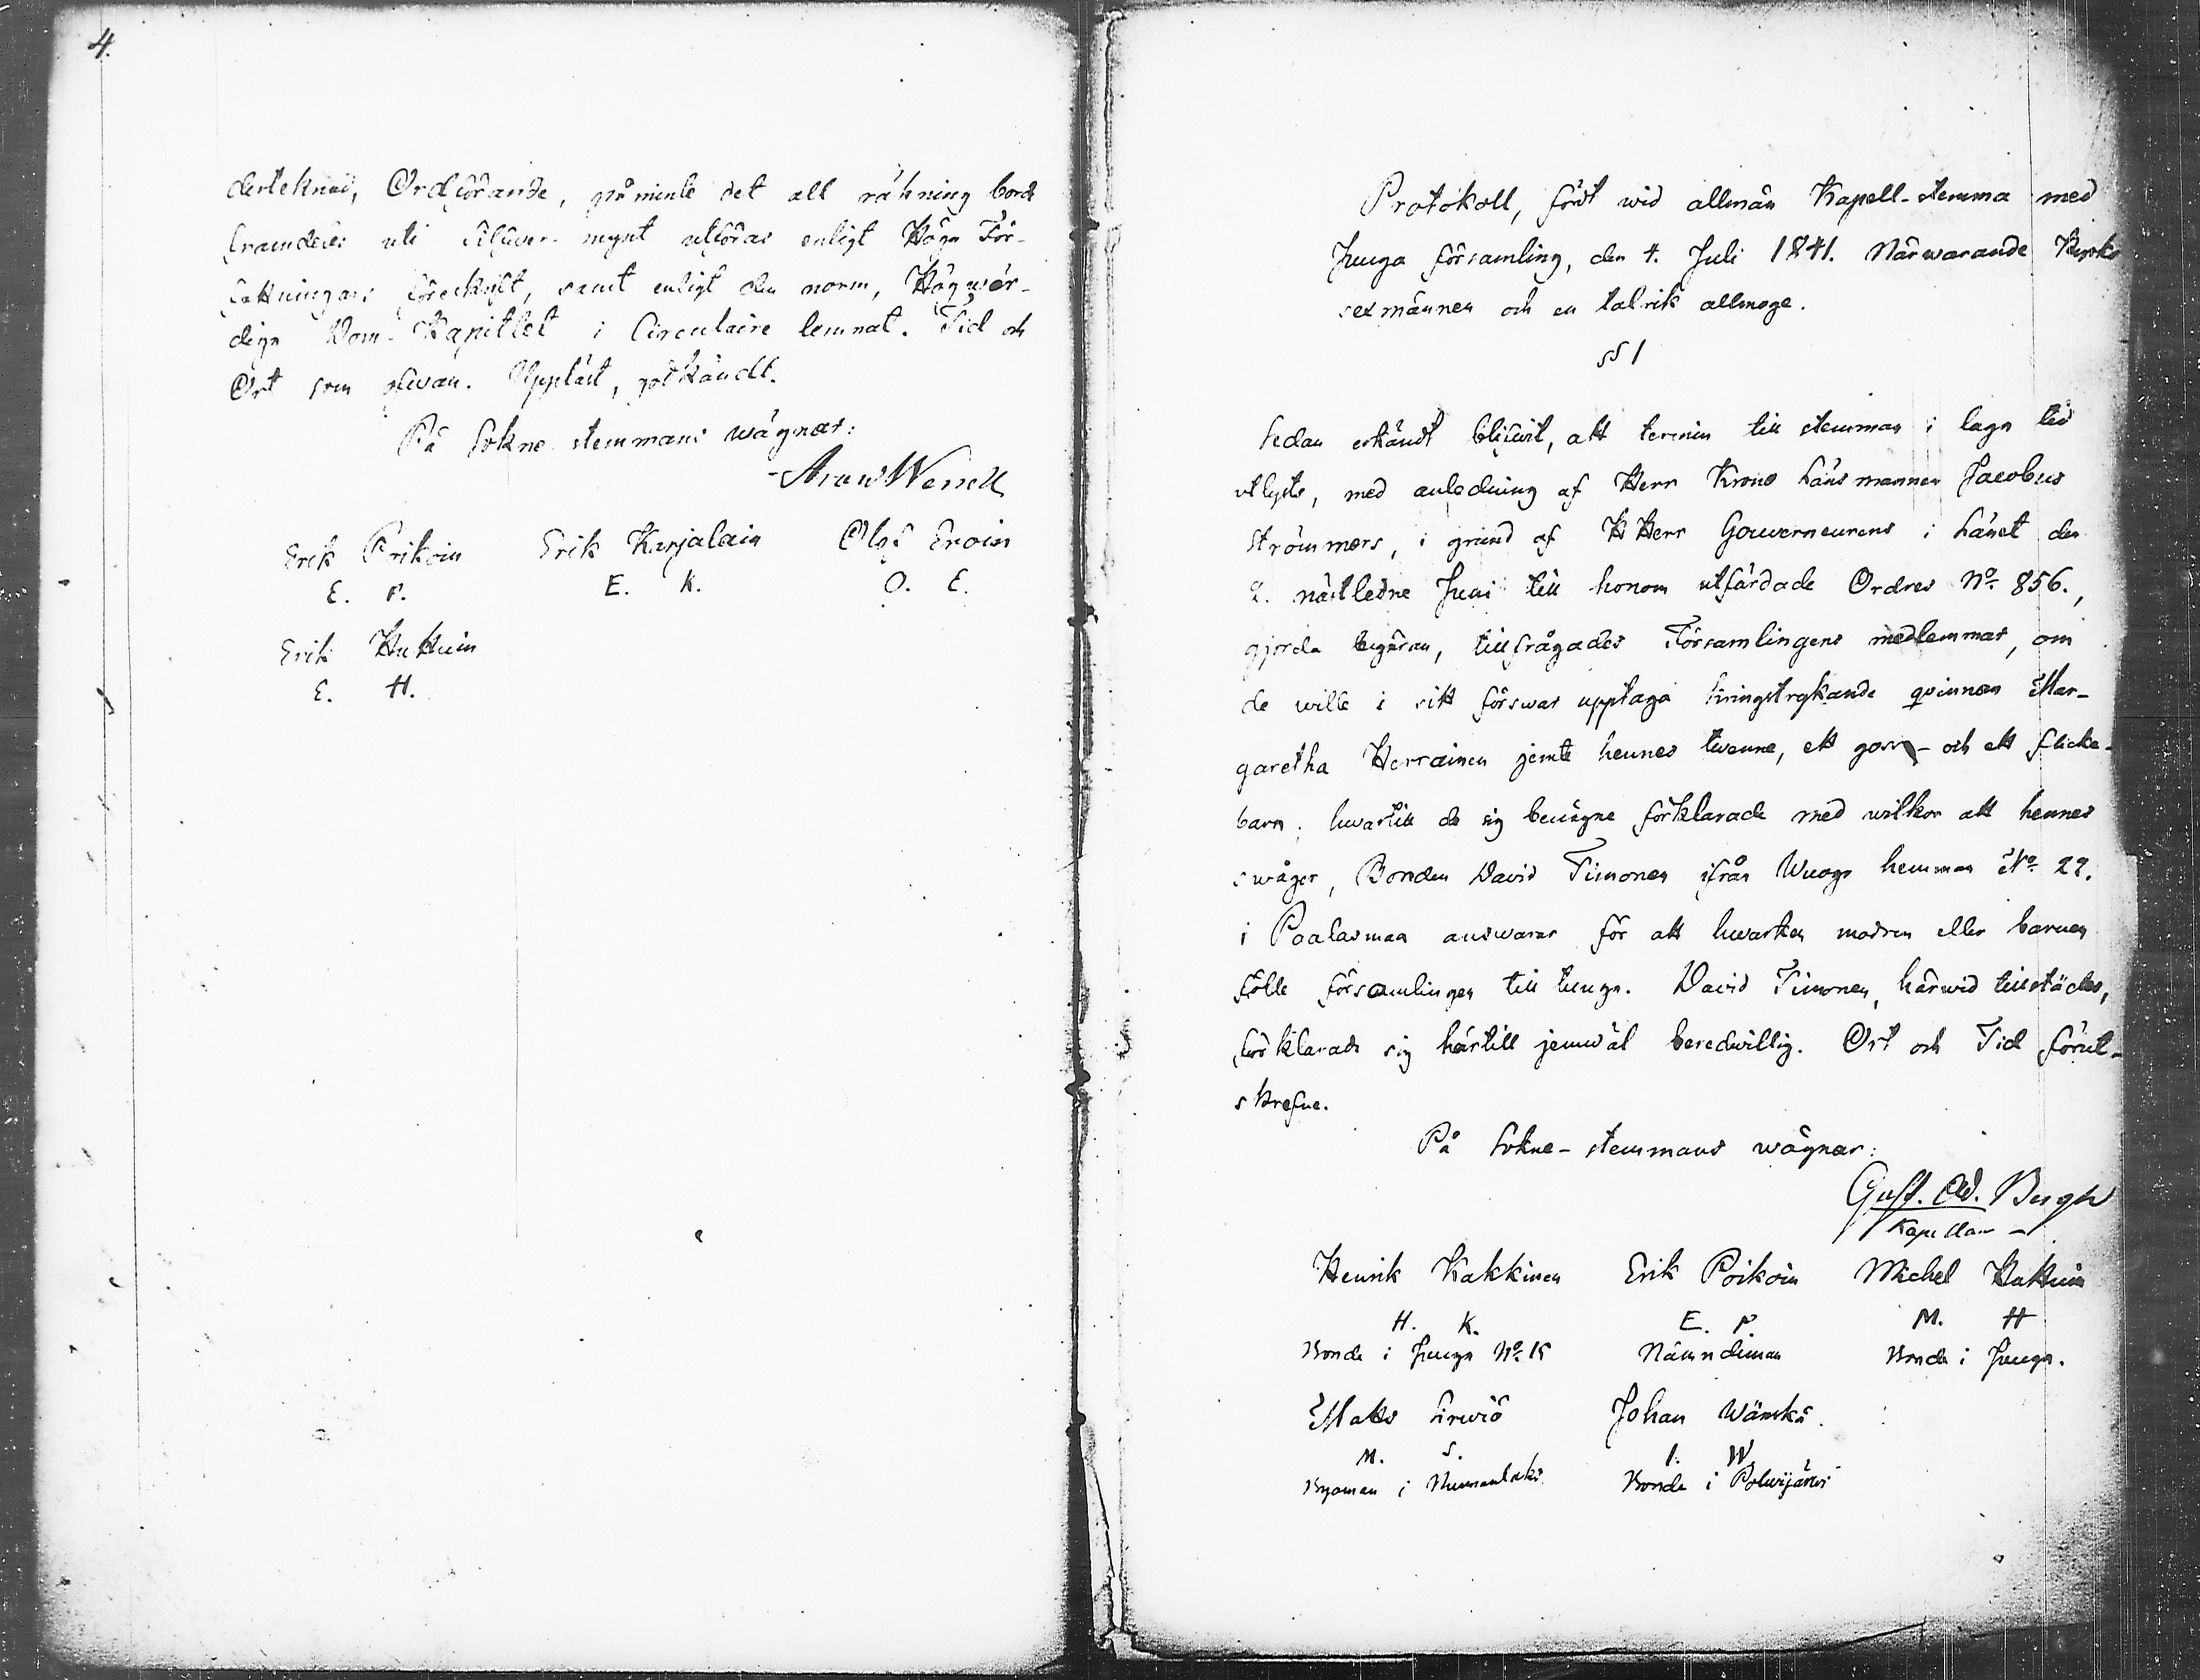 4.
derteknad, Ordförande, påminte det all räkning borde
framdeles uti silfwer-mynt utföras enligt Höga För-
fattningars föreskrift, samt enligt den norm, Högwör-
diga Dom-Kapitlet i Circulaire lemnat. Tid och
Ort som ofwan. Uppläst, godkändt.
På Sokne stemmans wägnar:
Erik Poikoin Erik Karjalain Olof Eroin
E. P. E. K. O. E.
Erik Hattuin
E. H.
Protokoll, fördt wid allmän Kapell-stemma med
Juuga församling, den 4. Juli 1841. Närwarande Kyrko
sexmännen och en talrik allmoge.
§§ 1
Sedan erkändt blifwit, att termin till stemman i laga tid
utlysts, med anledning af Herr Krono Länsmannen Jacobus
Strömmers, i grund af H Herr Gouverneurens i Länet den
2. nästledne Juni till honom utfärdade Ordres No. 856.,
gjorda begäran, tillfrågades Församlingens medlemmar, om
de wille i sitt förswar upptaga kringstrykande qvinnan Mar-
garetha Herrainen jemte hennes twenne, ett goss- och ett flicke-
barn; hwartill de sig benägne förklarade med wilkor att hennes
swåger, Bonden David Timonen ifrån Wuogo hemman No. 22.
i Paalasmaa answarar för att hwarken modren eller barnen
fölle församlingen till tunga. David Timonen, härwid tillstädes,
förklarade sig härtill jemwäl beredwillig. Ort och Tid förut-
skrefne.
På Sokne-stemmans wägnar:
Gust. Ad. Bergh
Kapellan
Henrik Kakkinen Erik Poikoin Michel Hattuin
H. K. E. P. M. H
Bonde i Juuga No. 15 Nämndeman Bonde i Juuga.
Matts Sirwiö Johan Wänskä.
M. S. I. W
Byoman i Nunnanlaks Bonde i Polwijärwi